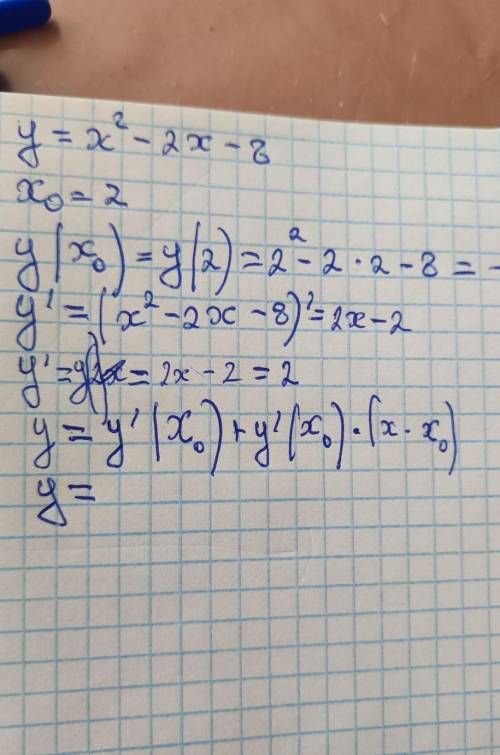 y = x² - 2x - 8
x₀ = 2
y(x₀) = y(2) = 2² - 2 · 2 - 8 = -
y' = (x² - 2x - 8)' = 2x - 2
y' = = 2x - 2 = 2
y = y'(x₀) + y'(x₀) · (x - x₀)
y =